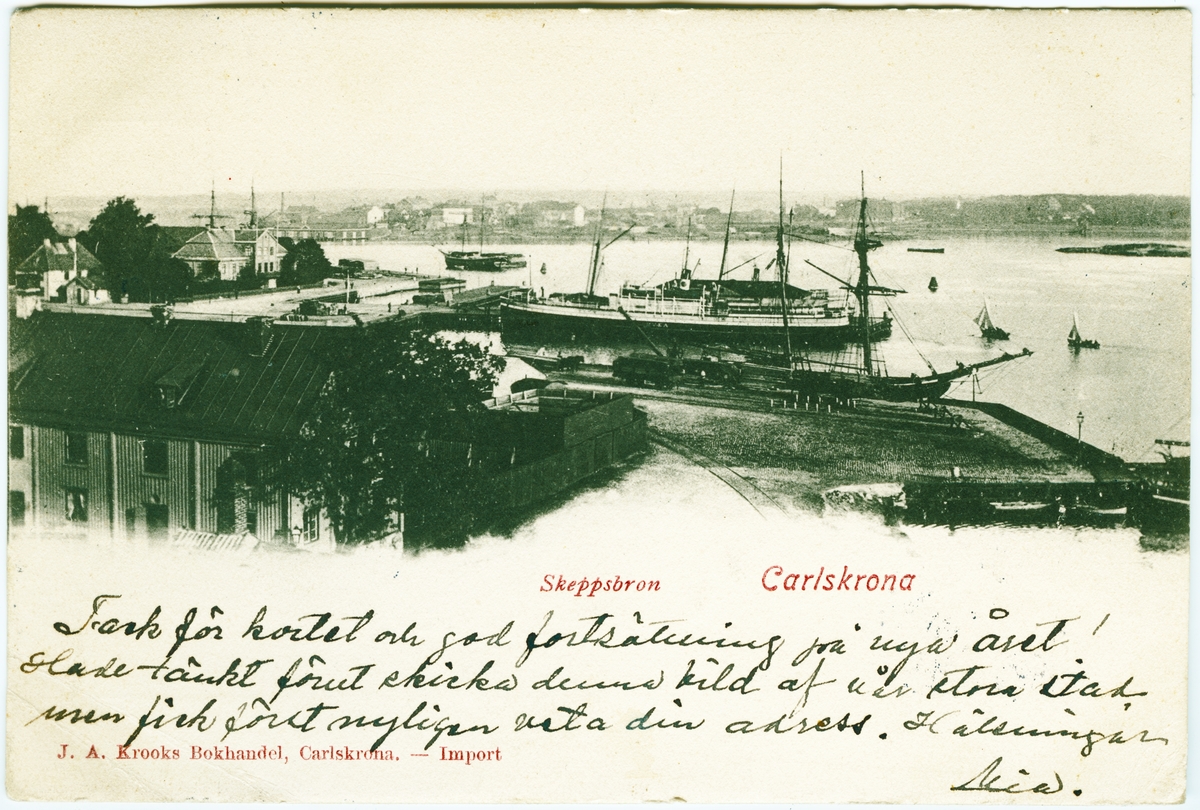 Skeppsbron Carlskrona
Tack för kortet och god fortsätning på nya året!
Hade tänkt förut skicka denna bild af vår stora stad,
men fick först nyligen veta din adress. Hälsningar
J. A. Krooks Bokhandel, Carlskrona. — Import
Mia.